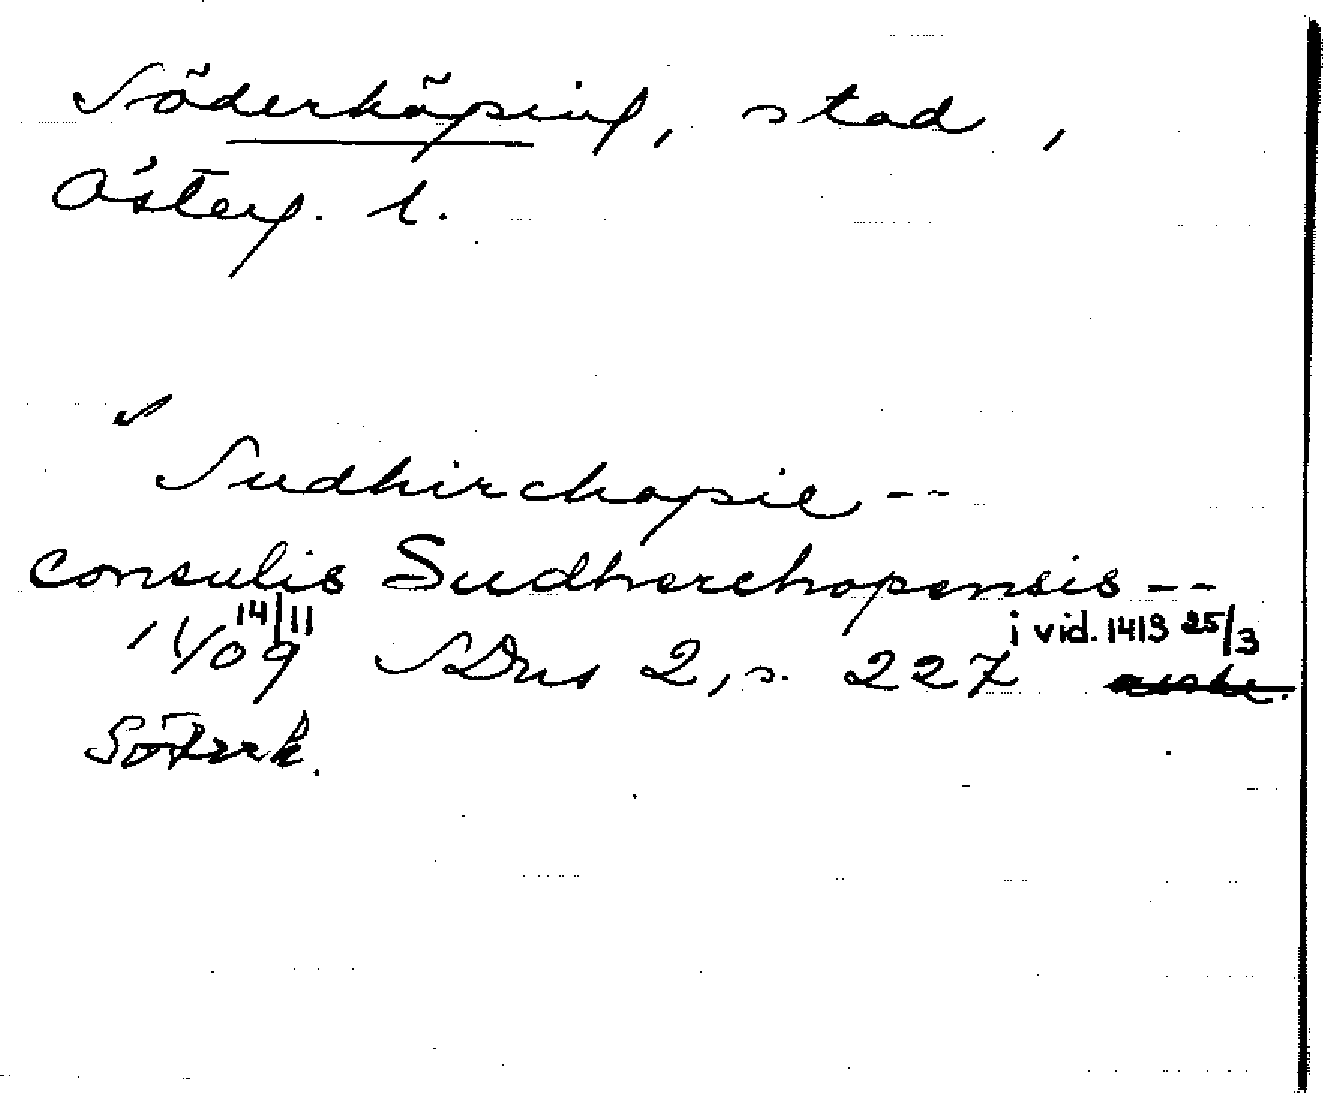 Söderköping, stad,
Österg. l.
Sudhirchopie --
consulis Sudherchopensis --
1409 14/11 SDns 2, s. 227 i vid. 1413 25/3